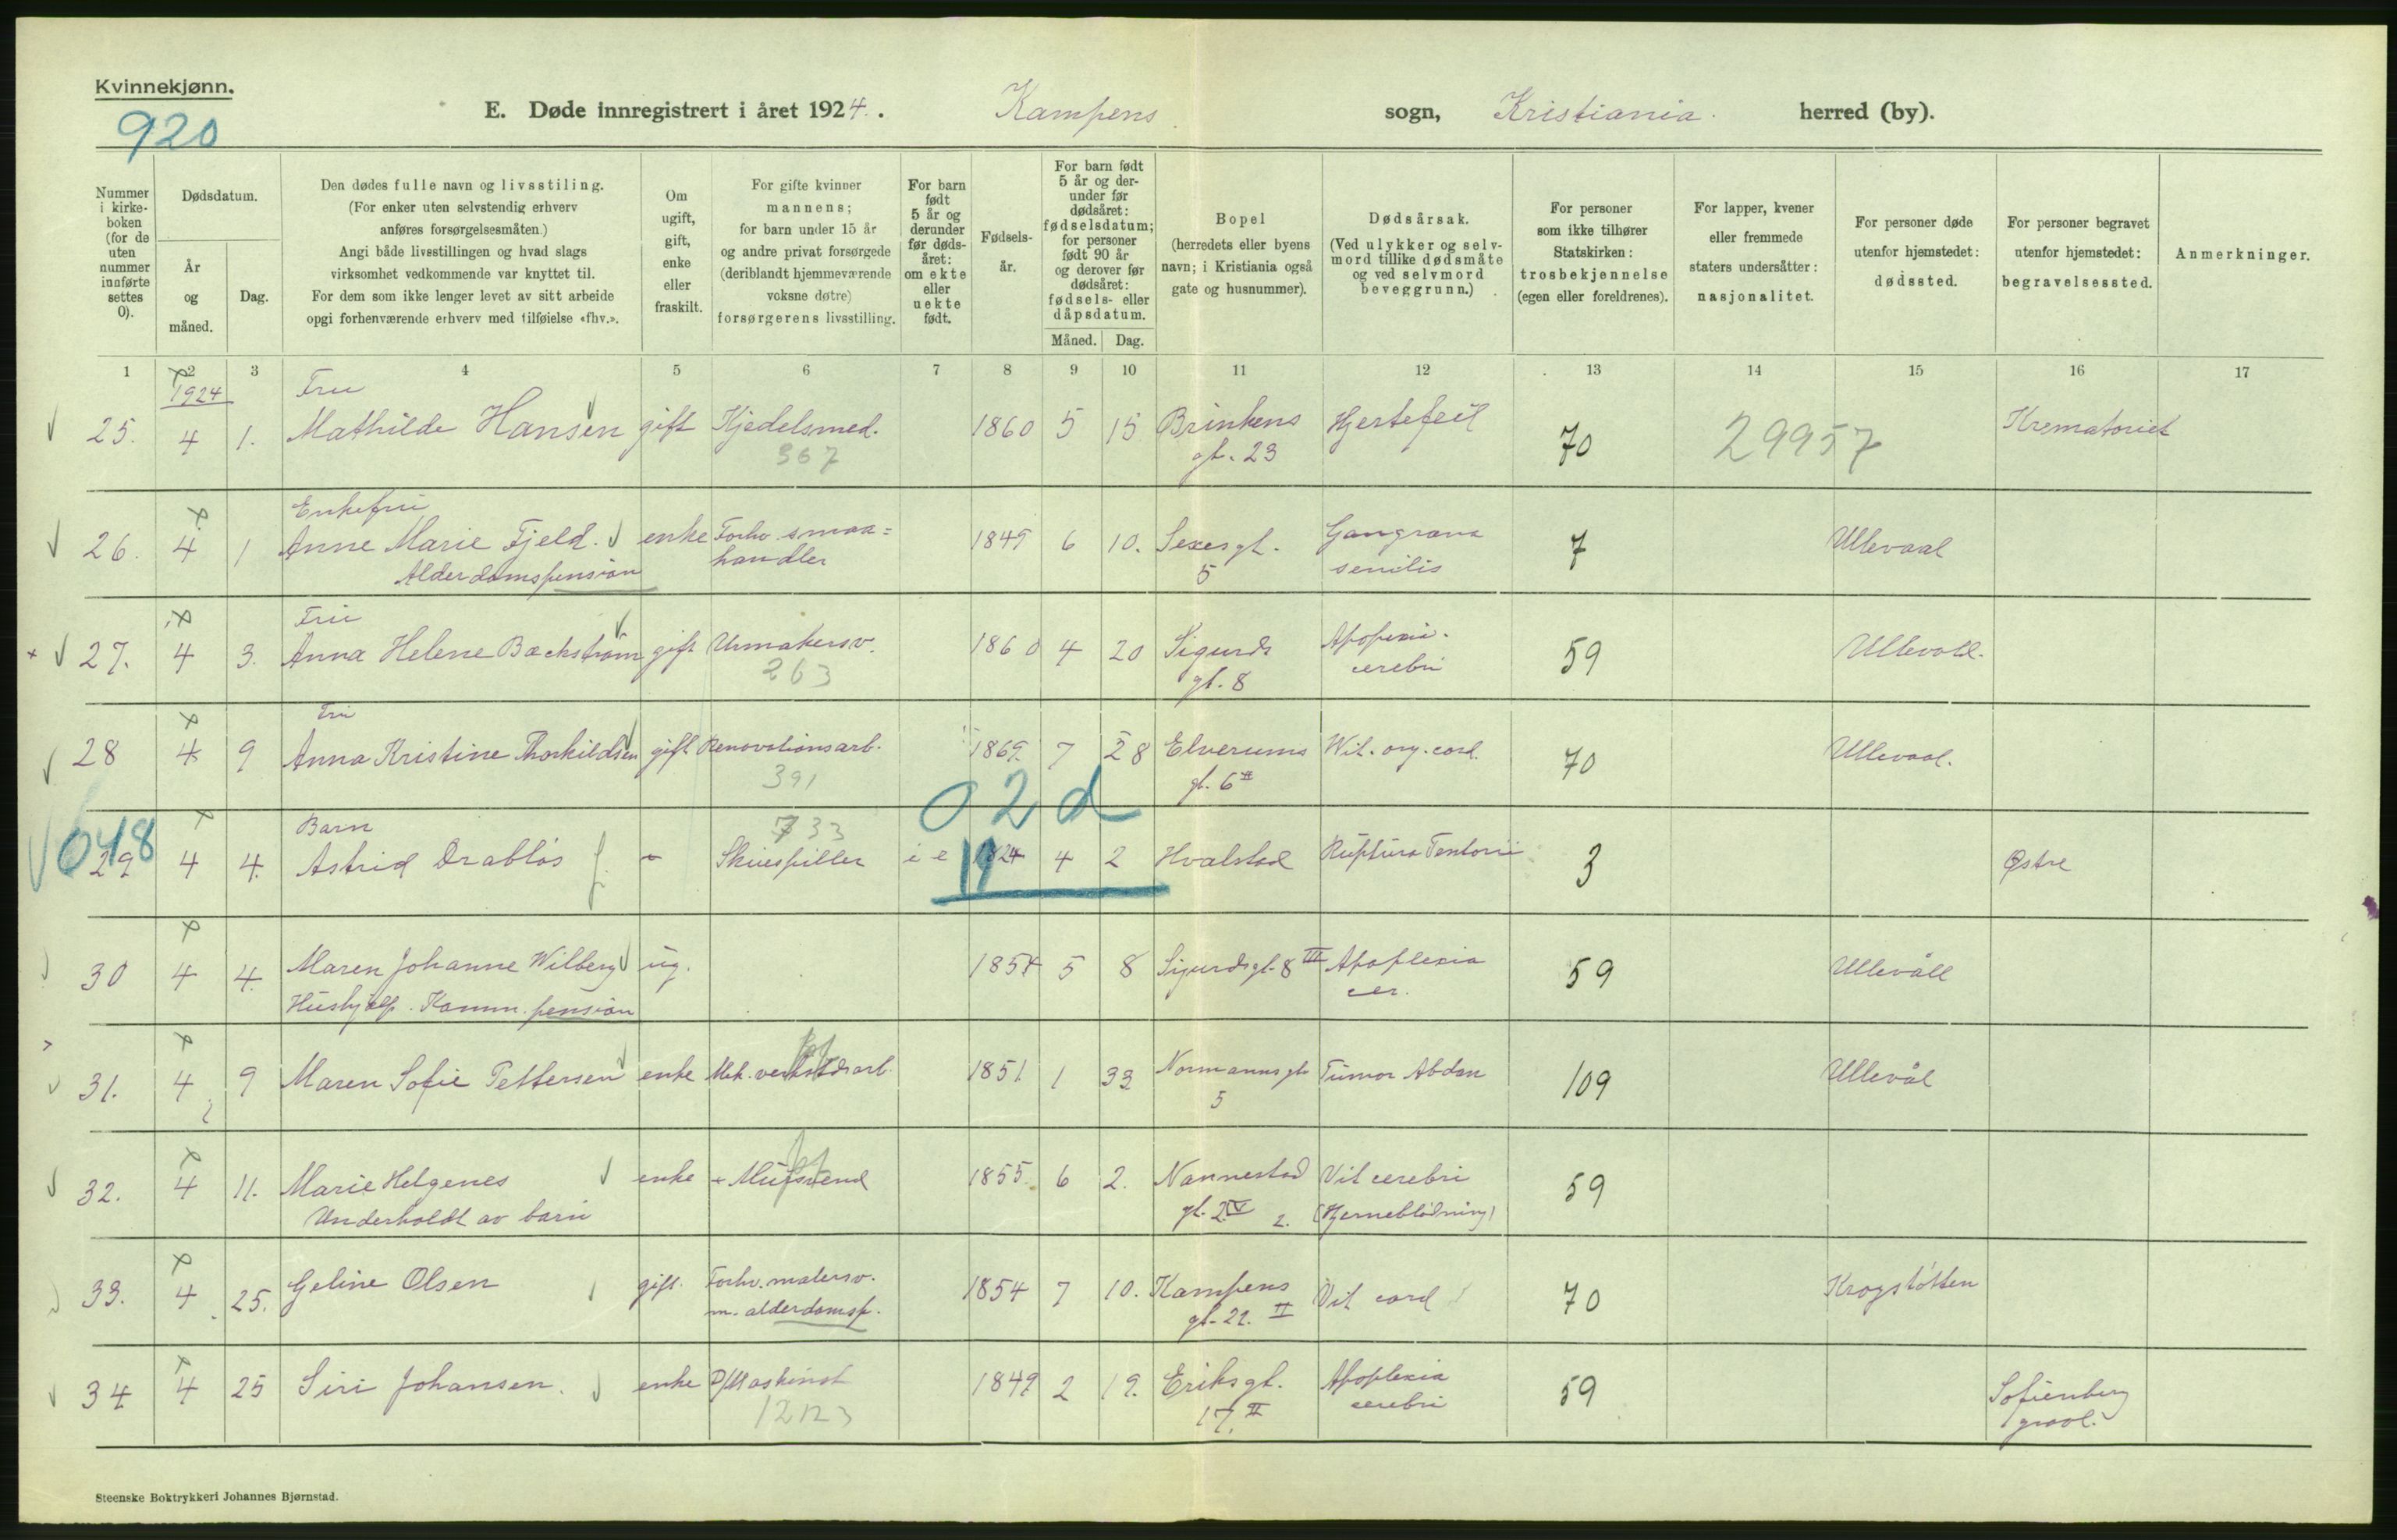 Kvinnekjønn.
920
E. Døde innregistrert i året 1924. Kampens sogn, Kristiania. herred (by).
Nummer i kirke-boken (for de uten nummer innførte settes 0).
Dødsdatum.
År og måned.
Dag.
Den dødes fulle navn og livsstiling.
(For enker uten selvstendig erhverv
anføres forsørgelsesmåten.)
Angi både livsstillingen og hvad slags
virksomhet vedkommende var knyttet til.
For dem som ikke lenger levet av sitt arbeide
opgi forhenværende erhverv med tilføielse «fhv.».
Om ugift, gift, enke eller fraskilt.
For gifte kvinner
mannens;
for barn under 15 år
og andre privat forsørgede
(deriblandt hjemmeværende
voksne døtre)
forsørgerens livsstilling.
For barn født 5 år og derunder før døds-året: om ekte eller uekte født.
Fødsels-år.
For barn født 5 år og der-under før dødsåret: fødselsdatum; for personer født 90 år og derover før dødsåret: fødsels- eller dåpsdatum.
Måned. Dag.
Bopel
(herredets eller byens
navn; i Kristiania også
gate og husnummer).
Dødsårsak.
(Ved ulykker og selv-
mord tillike dødsmåte
og ved selvmord
beveggrunn.)
For personer
som ikke tilhører
Statskirken:
trosbekjennelse
(egen eller foreldrenes).
For lapper, kvener
eller fremmede
staters undersåtter:
nasjonalitet.
For personer døde
utenfor hjemstedet:
dødssted.
For personer begravet
utenfor hjemstedet:
begravelsessted.
Anmerkninger.
1 2 3 4 5 6 7 8 9 10 11 12 13 14 15 16 17
1924 Fru
25. 4 1. Mathilde Hansen gift Kjedelsmed. 1860 5 15 Brinkens Hjertefeil 70 29957 Krematoriet
367 gt. 23
Enkefru
26. 4 1 Anne Marie Fjeld. enke Forhv. smaa= 1849 6 10. Sexesgt. Gangræna 7 Ullevaal
Alderdomspension handler 5 senilis
Fru
27. 4 3. Anna Helene Backstrøm gift Urmakersv. 1860 4 20 Sigurds Apopexia. 59 Ullevold.
263 gt. 8 cerebri
Fru
28 4 9 Anna Kristine Thorkildsen gift Renovationsarb. 1869. 7 28 Elverums Vit. org. cord. 70 Ullevaal.
391 gt. 6 II
02d
648 Barn 733
29 4 4. Astrid Drabløs - Skuespiller e 1924 4 2 Hvalstad Ruptura Tentorii 3 Østre
30 4 4. Maren Johanne Wilberg ug. 1854 5 8 Sigurdsgt. 8 III Apoplexia 59 Ullevåll
Hushjelp. Komm. pension cer.
31. 4 9 Maren Sofie Pettersen enke Mek. verkstdsarb. 1851 1 Normannsgt Tumor Abdom 109 Ullevål
5
32. 4 11. Marie Helgenes enke Mursvend 1855. 6 2. Nannestad Vit cerebri 59
Underholdt av barn gt. 2 IV (Hjerneblødning)
33. 4 25. Geline Olsen gift. Forhv. malersv. 1854 7 10. Kampens Vit cord 70 Krogstøtten
m. alderdomsp. gt. 22. II
34 4 25 Siri Johansen. enke D/Maskinist 1849 2 19. Eriksgt. Apoplexia 59 Sofienberg
17. II cerebri gravl.
Steenske Boktrykkeri Johannes Bjørnstad.